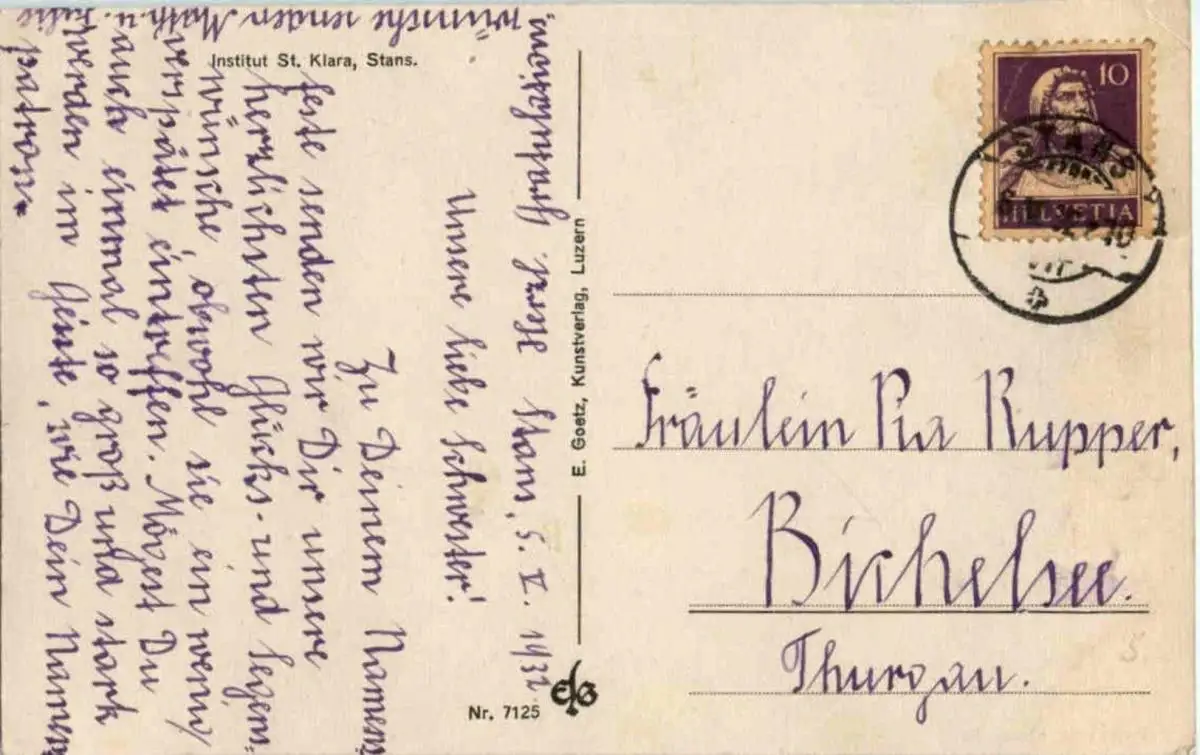 Institut St. Klara, Stans.
Stans, 5. V. 1932
Unsere liebe Schwester!
Zu Deinem Namens-
feste senden wir Dir unsere
herzlichsten Glücks- und Segens-
wünsche, obwohl sie ein wenig
verspätet eintreffen. Mögest Du
auch einmal so groß und stark
werden im Geiste, wie Dein Namens-
patron.
Herzl. Gratulations-
wünsche senden Math. u. Julie
E. Goetz, Kunstverlag, Luzern
Nr. 7125
EG
10
HELVETIA
STANS
Fräulein Pia Rupper,
Bichelsee.
Thurgau.
5